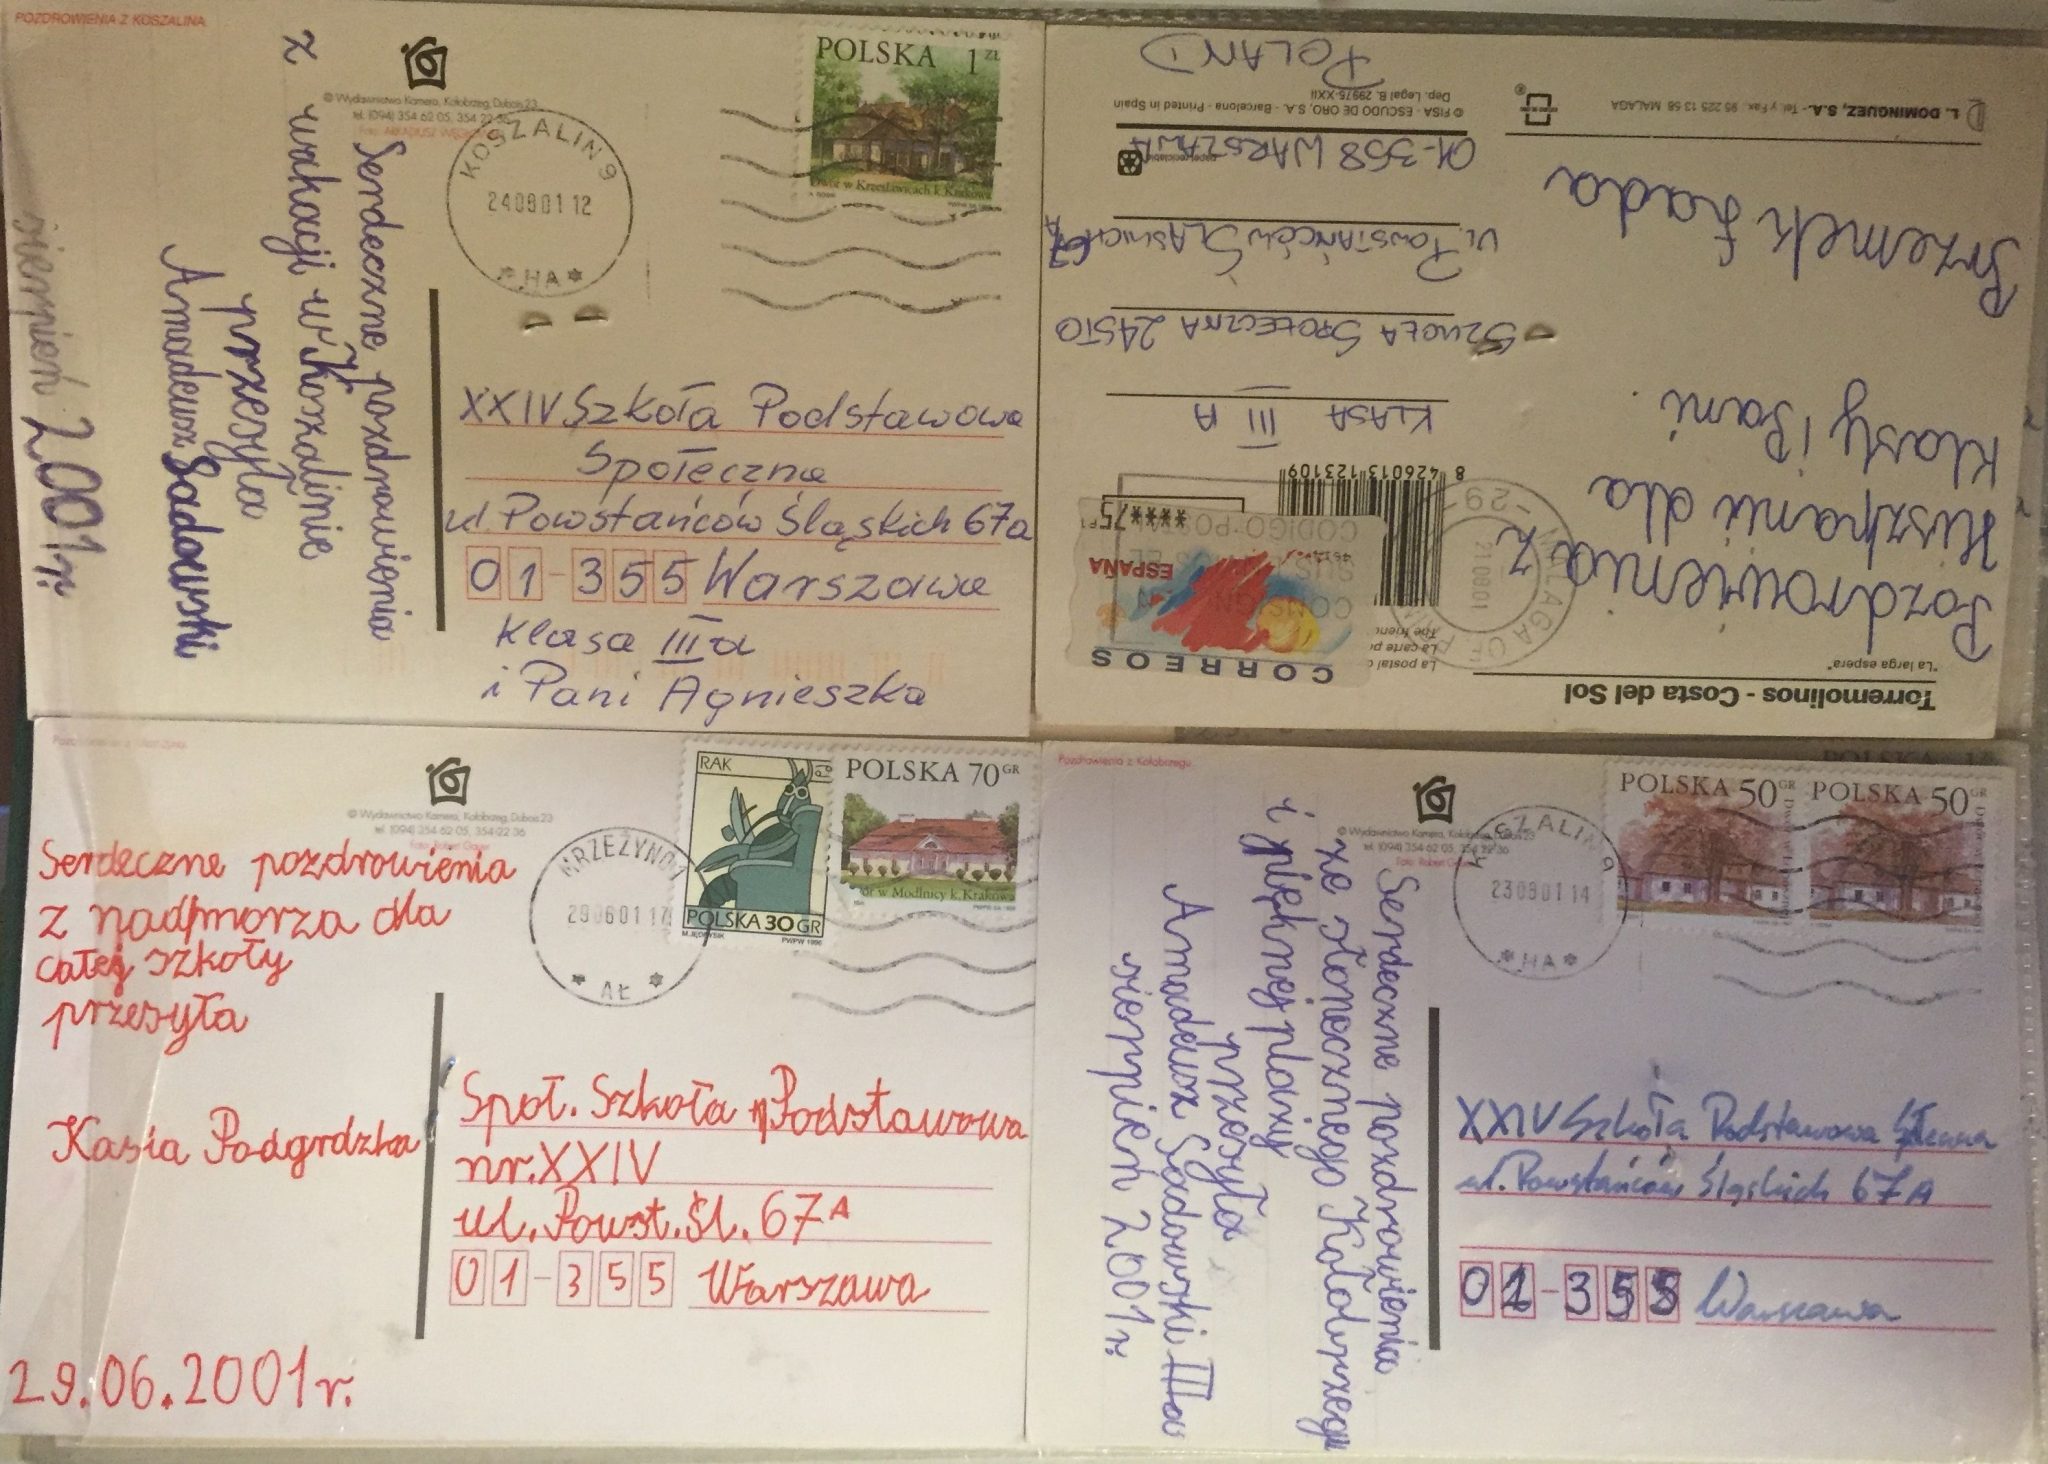 POZDROWIENIA Z KOSZALINA
© Wydawnictwo Kamera, Kołobrzeg, Dubois 23
tel. (094) 354 62 05, 354 22 36
Serdeczne pozdrowienia
z wakacji w Koszalinie
przesyła
Amadeusz Sadowski
sierpień 2001r.
KOSZALIN 9
240801 12
* HA *
POLSKA 1 ZŁ
Dwór w Krzesławicach k. Krakowa
XXIV Szkoła Podstawowa
Społeczna
ul. Powstańców Śląskich 67a
01-355 Warszawa
Klasa IIIa
i Pani Agnieszka
Torremolinos - Costa del Sol
"La larga espera"
Pozdrowienia z
Hiszpanii dla
Klasy i Pani.
Przemek Łada
L. DOMINGUEZ, S.A. - Tel y Fax. 95 225 13 58 MALAGA
CORREOS
ESPAÑA
***75 PT
MALAGA
210801
8 426013 123109
KLASA III A
SZKOŁA SPOŁECZNA 24STO
UL. POWSTAŃCÓW ŚLĄSKICH 67A
01-358 WARSZAWA
© FISA - ESCUDO DE ORO, S.A. - Barcelona - Printed in Spain
Dep. Legal B. 29975-XXII
POLAND
© Wydawnictwo Kamera, Kołobrzeg, Dubois 23
tel. (094) 354 62 05, 354 22 36
Serdeczne pozdrowienia
z nadmorza dla
całej szkoły
przesyła
Kasia Podgrdzka
29.06.2001r.
MRZEŻYNO 1
290601 17
* AŁ *
RAK
POLSKA 30 GR
POLSKA 70 GR
Dwór w Modlnicy k. Krakowa
Społ. Szkoła Podstawowa
nr. XXIV
ul. Powst. Śl. 67A
01-355 Warszawa
Pozdrowienia z Kołobrzegu
© Wydawnictwo Kamera, Kołobrzeg, Dubois 23
tel. (094) 354 62 05, 354 22 36
Serdeczne pozdrowienia
ze słonecznego Kołobrzegu
i pięknej plaży
przesyła
Amadeusz Sadowski IIIa
sierpień 2001r.
KOSZALIN 9
230801 14
* HA *
POLSKA 50 GR
POLSKA 50 GR
XXIV Szkoła Podstawowa
ul. Powstańców Śląskich 67A
01-355 Warszawa